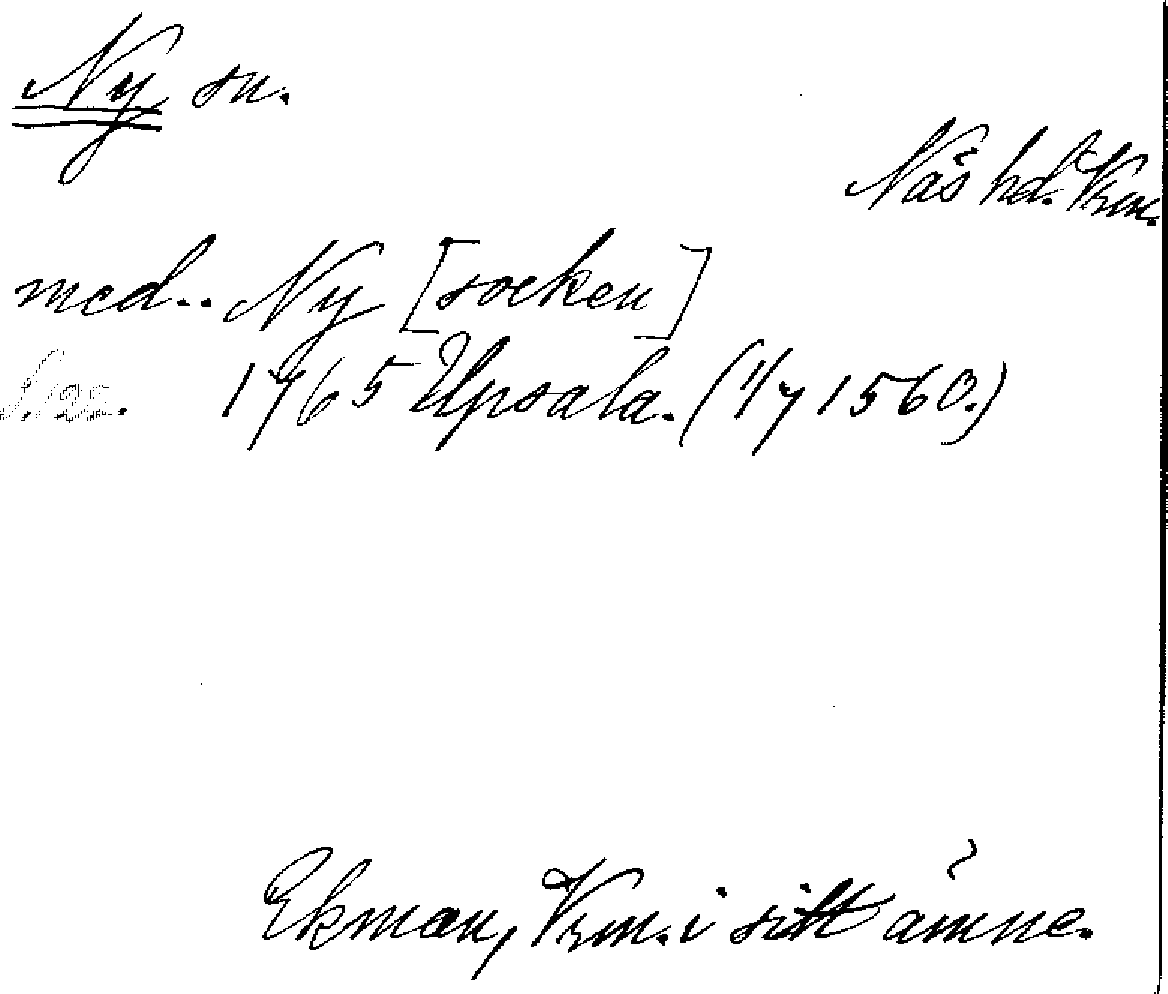 Ny sn.
Näs hd. Vrm.
med.. Ny [socken]
1765 Upsala. (1/7 1560.)
Ekman, Vrm. i sitt ämne.